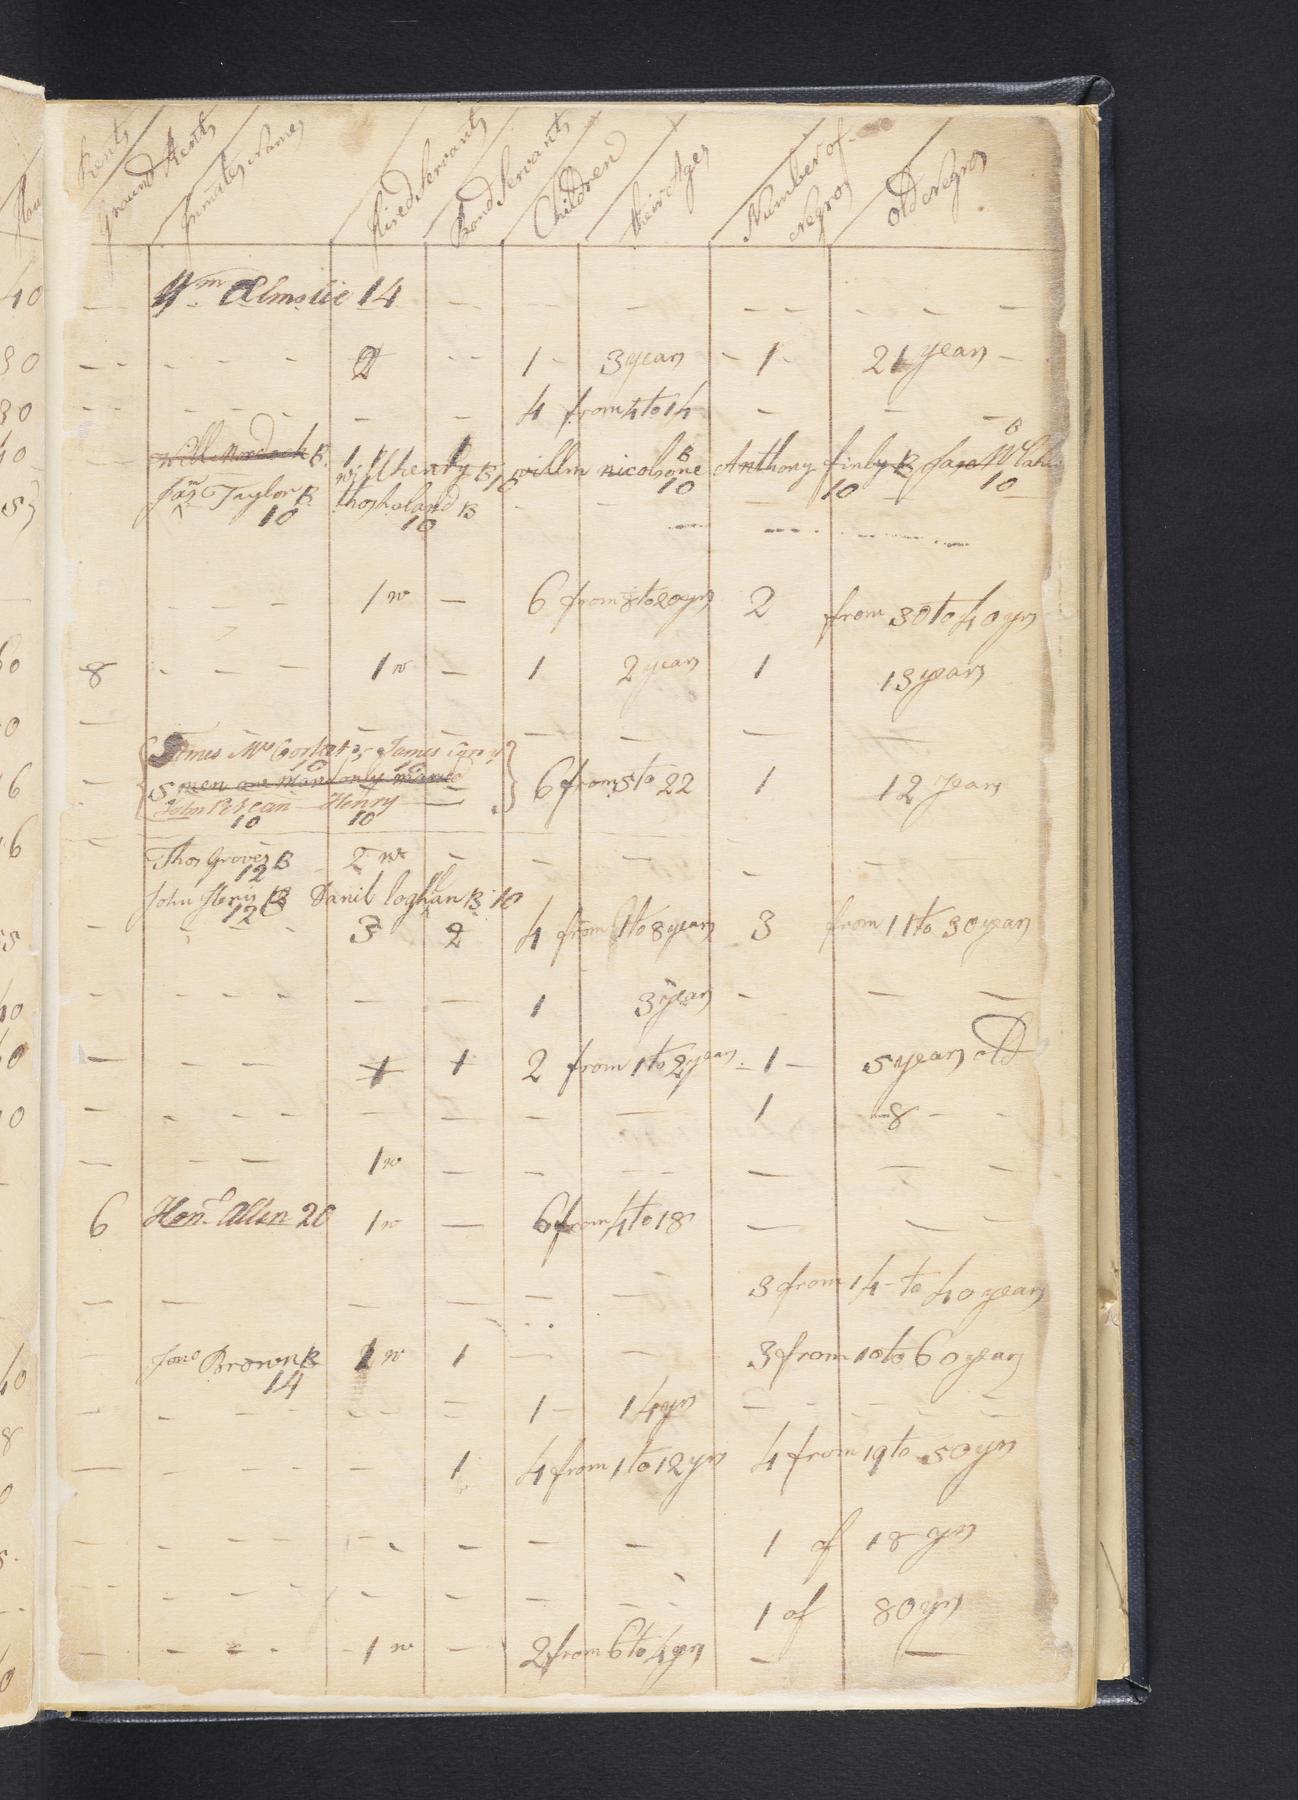 Rents
Ground Rents
Inmates Names
Hired Servants
Bond Servants
Children
their Ages
Number of Negros
Old Negros
Wm Elmslie 14
2 1 3 years 1 21 years
4 from 4 to 14
Will Mordock B. 1 Will henry B 10 willm nicolsone B 10 Anthony finly B 10
Jas Taylor B 10 thos holand B 10
1 w 6 from 8 to 20 yrs 2 from 30 to 40 yrs
8 1 w 1 2 years 1 13 years
James 10 James 10
5 men only
John 10 Henry 10 6 from 5 to 22 1 12 years
Thos Groves B 12 2 w
John B 12 Danil loghan B 10
3 2 4 from 1 to 8 years 3 from 11 to 30 years
1 3 years
1 1 2 from 1 to 2 years 1 5 years old
1 8
1 w
6 Honl Allen 20 1 w 6 from 4 to 18
3 from 14 to 40 years
Jono Brown B 14 1 w 1 3 from 10 to 60 years
1 14 yrs
1 4 from 1 to 12 yrs 4 from 19 to 50 yrs
1 of 18 yrs
1 of 80 yrs
1 w 2 from 6 to 4 yrs